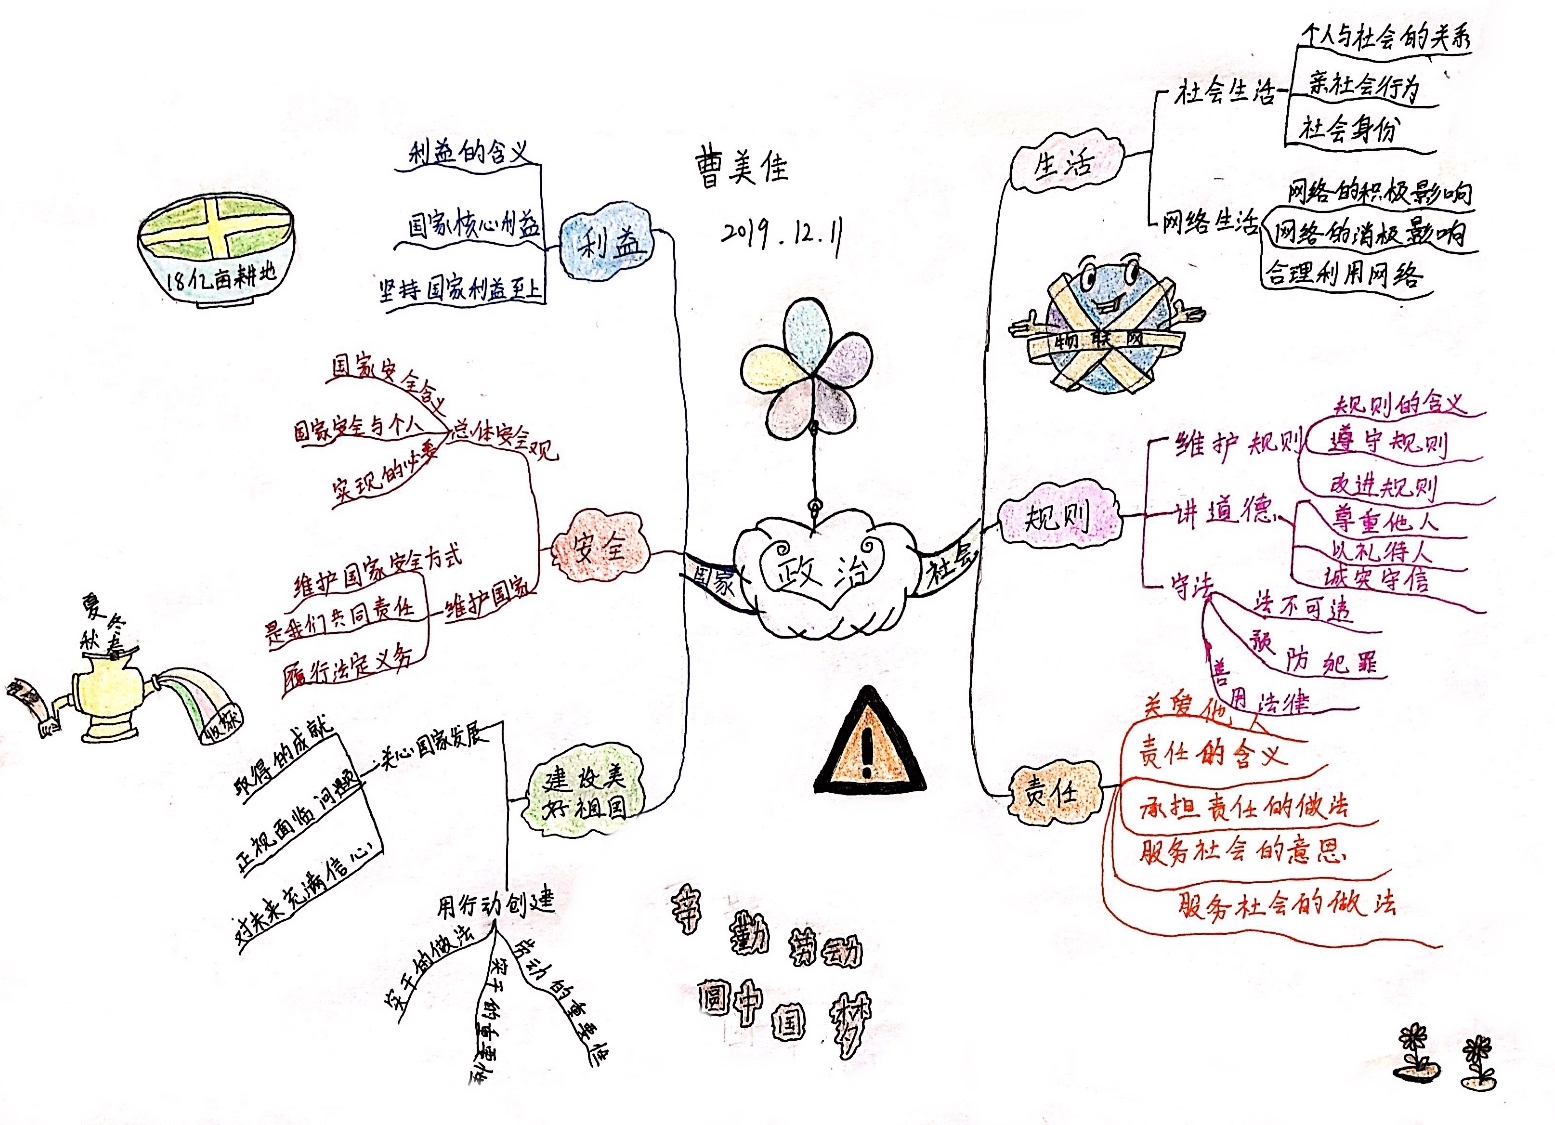 曹美佳
2019.12.11
政治
国家
社会
利益
利益的含义
国家核心利益
坚持国家利益至上
18亿亩耕地
安全
总体安全观
国家安全含义
国家安全与个人
实现的必要
维护国家
维护国家安全方式
是我们共同责任
履行法定义务
夏
冬
秋春
收获
建设美
好祖国
关心国家发展
取得的成就
正视面临问题
对未来充满信心
用行动创建
实干的做法
实干的重要性
劳动的重要性
生活
社会生活
个人与社会的关系
亲社会行为
社会身份
网络生活
网络的积极影响
网络的消极影响
合理利用网络
物联网
规则
维护规则
规则的含义
遵守规则
改进规则
讲道德
尊重他人
以礼待人
诚实守信
守法
法不可违
预防犯罪
善用法律
责任
关爱他人
责任的含义
承担责任的做法
服务社会的意思
服务社会的做法
!
辛勤劳动
圆中国梦